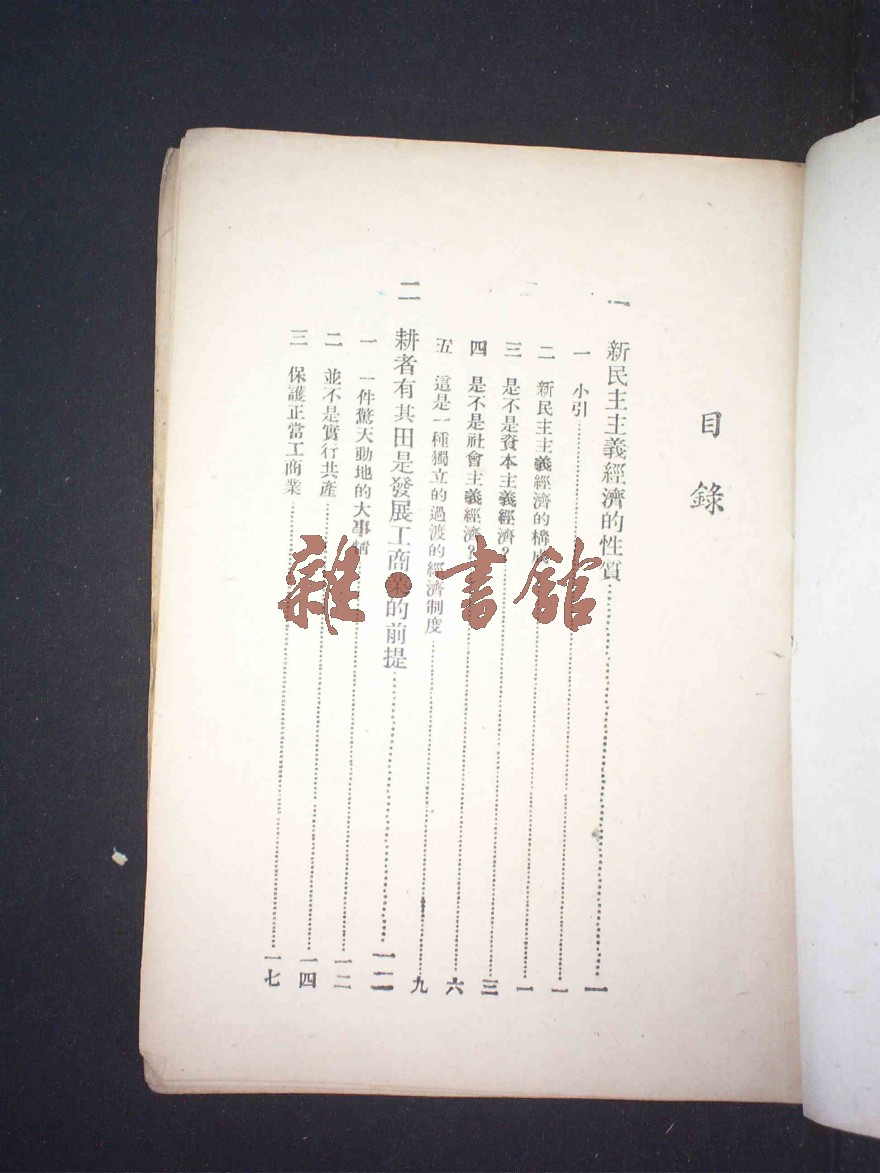 目錄
一 新民主主義經濟的性質……一
一 小引……一
二 新民主主義經濟的構成……一
三 是不是資本主義經濟？……三
四 是不是社會主義經濟？……六
五 這是一種獨立的過渡的經濟制度……九
二 耕者有其田是發展工商業的前提……一二
一 一件驚天動地的大事情……一二
二 並不是實行共產……一四
三 保護正當工商業……一七
雜·書館